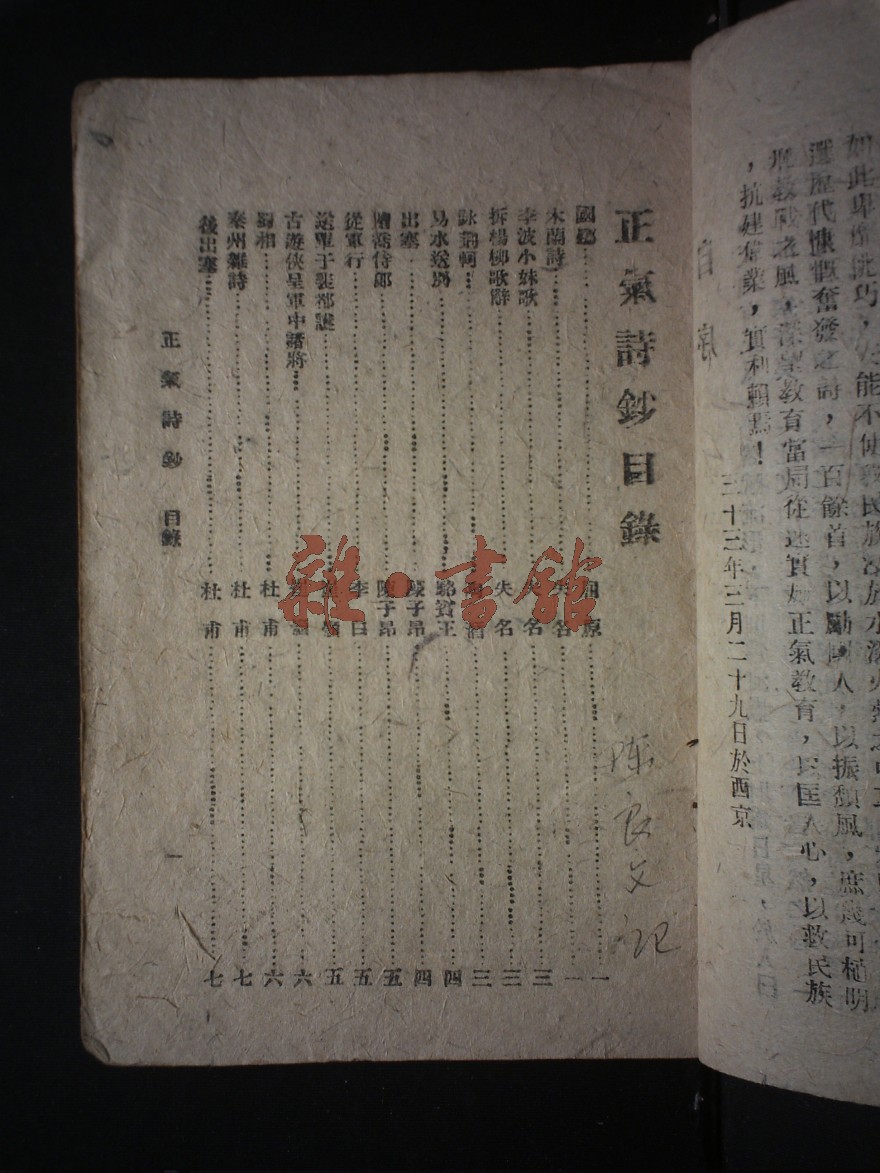 如此卑
能不使我民族
選歷代慷慨奮發之詩,一百餘首,以勵國人,以振頹風,庶幾可稍明
教戰之風,深望教育當局從速實施正氣教育,以匡人心,以救民族
,抗建偉業,實利賴焉!
三十三年三月二十九日於西京
自序
正氣詩鈔目錄
國殤 屈原 一
木蘭詩 一
李波小妹歌 失名 三
折楊柳歌辭 失名 三
詠荊軻 陶潛 三
易水送別 駱賓王 四
出塞 四
贈喬侍郎 陳子昂 五
從軍行 李白 五
送單于裴都護 崔顥 五
古遊俠呈軍中諸將 崔顥 六
蜀相 杜甫 六
秦州雜詩 杜甫 七
後出塞 杜甫 七
正氣詩鈔 目錄
一
陳良文記
雜·書館